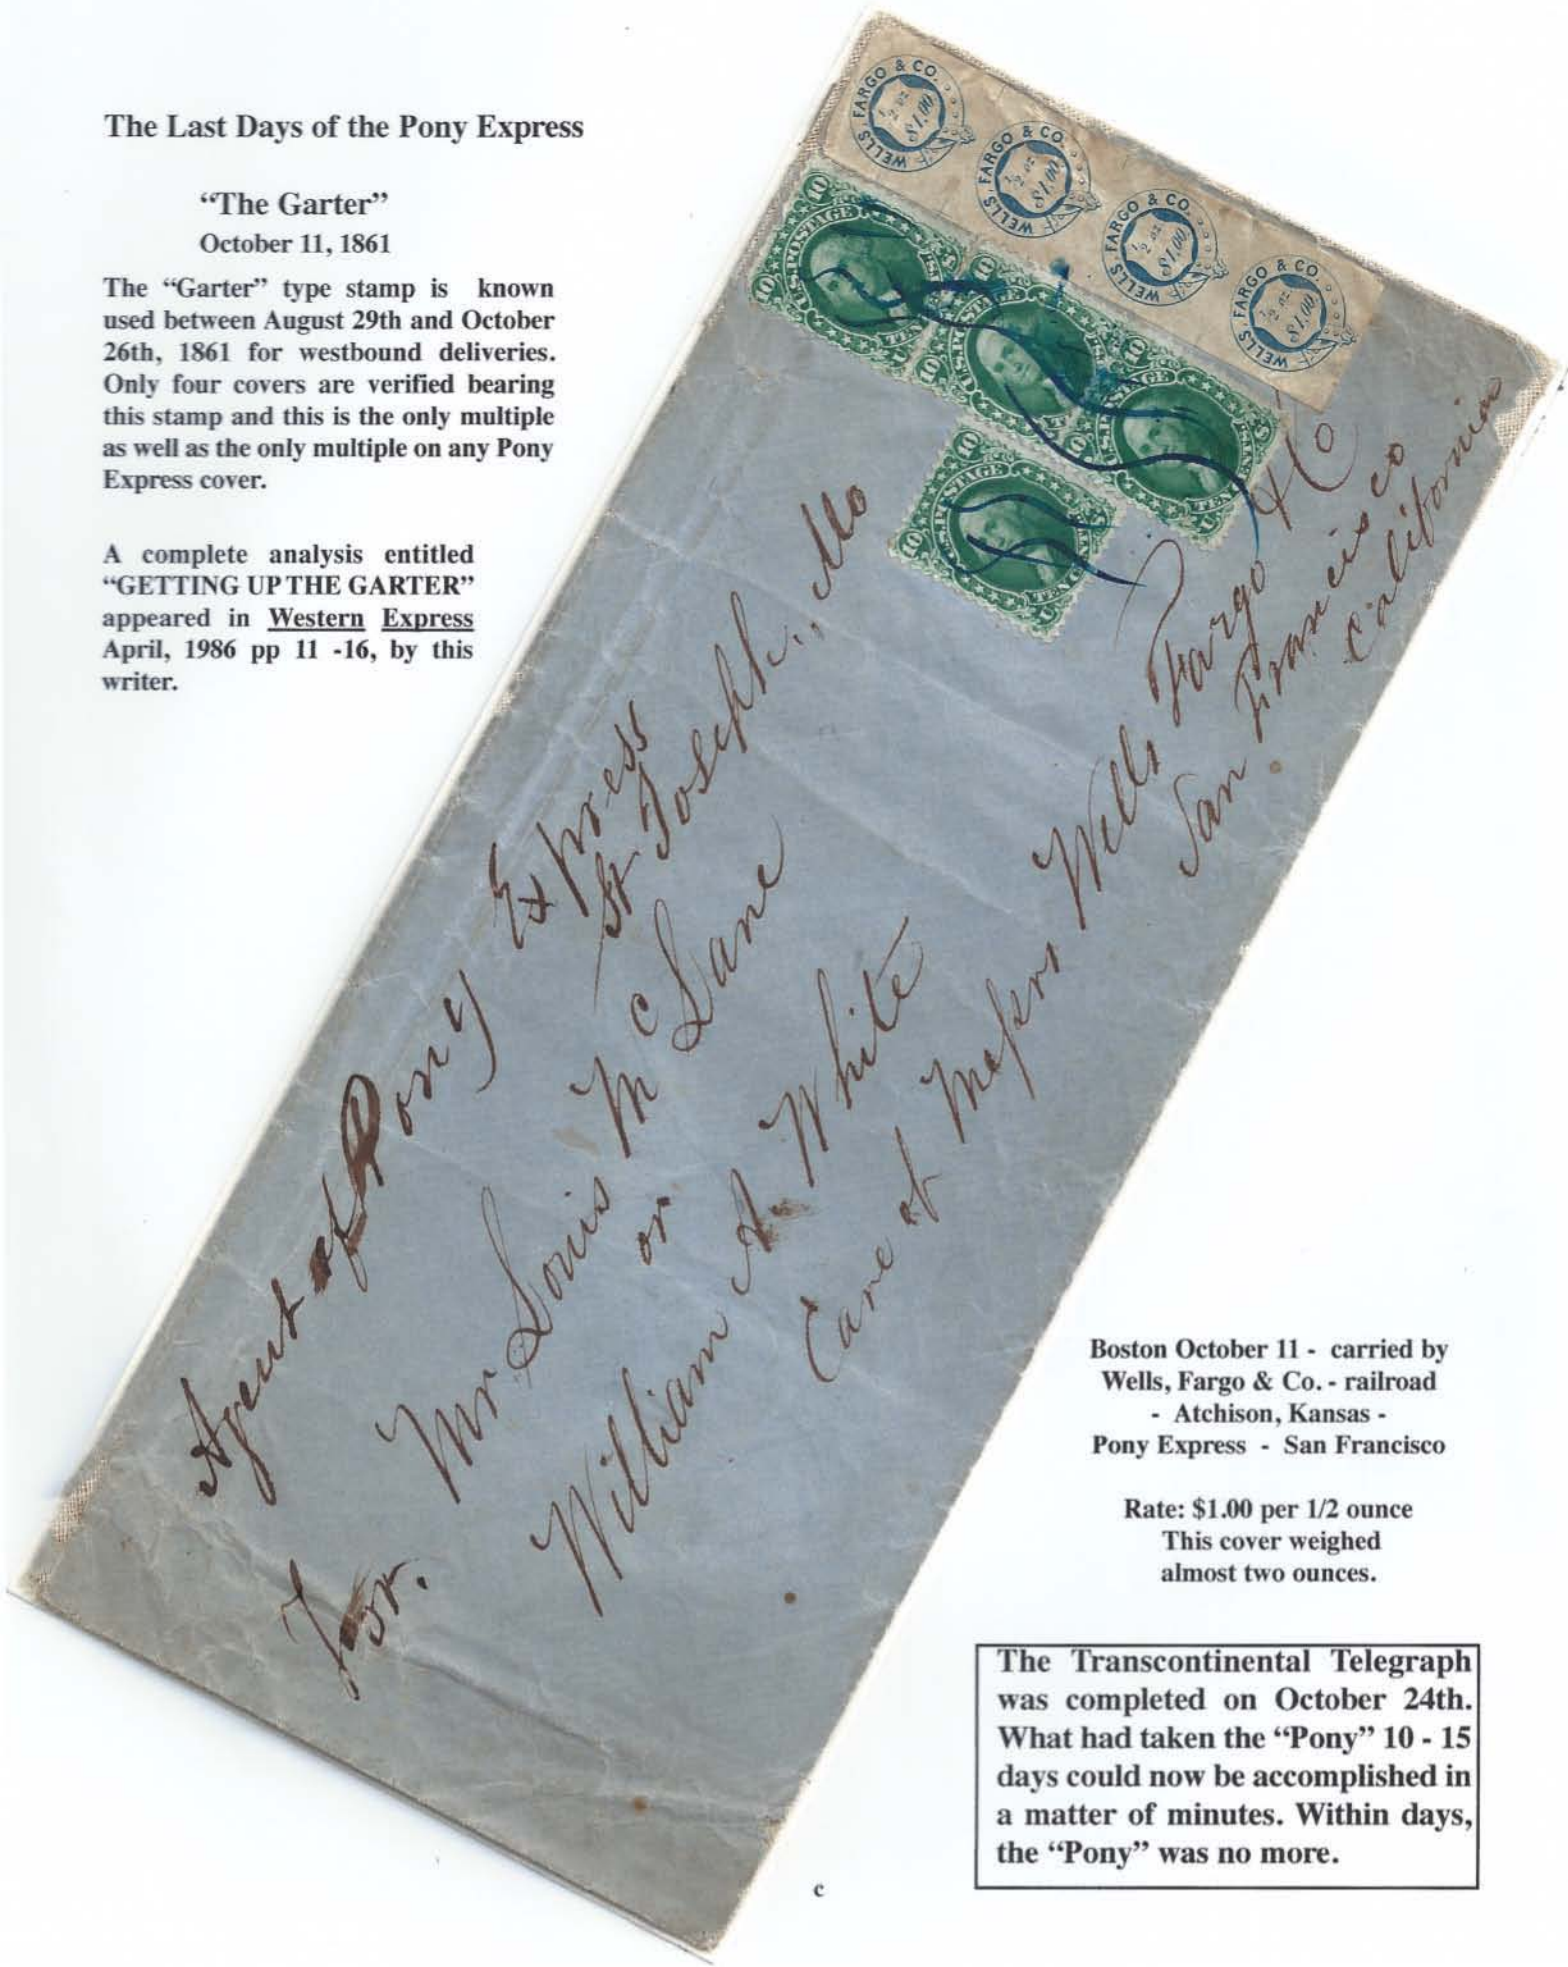 The Last Days of the Pony Express
“The Garter”
October 11, 1861
The “Garter” type stamp is known
used between August 29th and October
26th, 1861 for westbound deliveries.
Only four covers are verified bearing
this stamp and this is the only multiple
as well as the only multiple on any Pony
Express cover.
A complete analysis entitled
“GETTING UP THE GARTER”
appeared in Western Express
April, 1986 pp 11 -16, by this
writer.
WELLS, FARGO & CO.
1/2 oz
$1.00
WELLS, FARGO & CO.
1/2 oz
$1.00
WELLS, FARGO & CO.
1/2 oz
$1.00
WELLS, FARGO & CO.
1/2 oz
$1.00
10 U.S. POSTAGE
10 U.S. POSTAGE 10
10 POSTAGE TEN
10 U.S. POSTAGE 10 TEN
Agent of Pony Express
St Joseph., Mo
For.
Mr Louis McLane
or
William A. White
Care of Messrs Wells Fargo & Co
San Francisco
California
Boston October 11 - carried by
Wells, Fargo & Co. - railroad
- Atchison, Kansas -
Pony Express - San Francisco
Rate: $1.00 per 1/2 ounce
This cover weighed
almost two ounces.
The Transcontinental Telegraph
was completed on October 24th.
What had taken the “Pony” 10 - 15
days could now be accomplished in
a matter of minutes. Within days,
the “Pony” was no more.
c